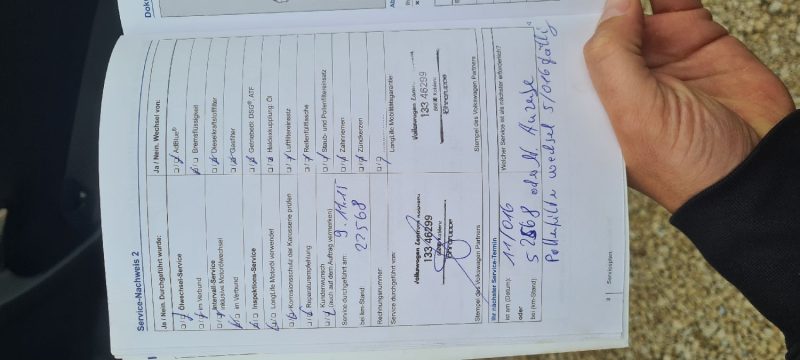 Service-Nachweis 2
Ja / Nein. Durchgeführt wurde:
Ölwechsel-Service
im Verbund
Intervall-Service
inklusive Motorölwechsel
im Verbund
Inspektions-Service
LongLife Motoröl verwendet
Korrosionsschutz der Karosserie prüfen
Reparaturempfehlung
Kundenwunsch
(auch auf dem Auftrag vermerken)
Service durchgeführt am: 9.11.15
bei km-Stand 22568
Rechnungsnummer:
Service durchgeführt von:
Volkswagen Zentrum
133 46299
Stempel des Volkswagen Partners
Ja / Nein. Wechsel von:
AdBlue®
Bremsflüssigkeit
Dieselkraftstofffilter
Gasfilter
Getriebeöl: DSG® ATF
Haldexkupplung: Öl
Luftfiltereinsatz
Reifenfüllflasche
Staub- und Pollenfiltereinsatz
Zahnriemen
Zündkerzen
LongLife Mobilitätsgarantie:
Volkswagen
133 46299
Stempel des Volkswagen Partners
Ihr nächster Service-Termin
ist am (Datum): 11/016
oder
bei (km-Stand): 52568 oder lt. Anzeige
Welcher Service ist als nächster erforderlich?
Pollenfilter wechsel 5/016 fällig
Serviceplan